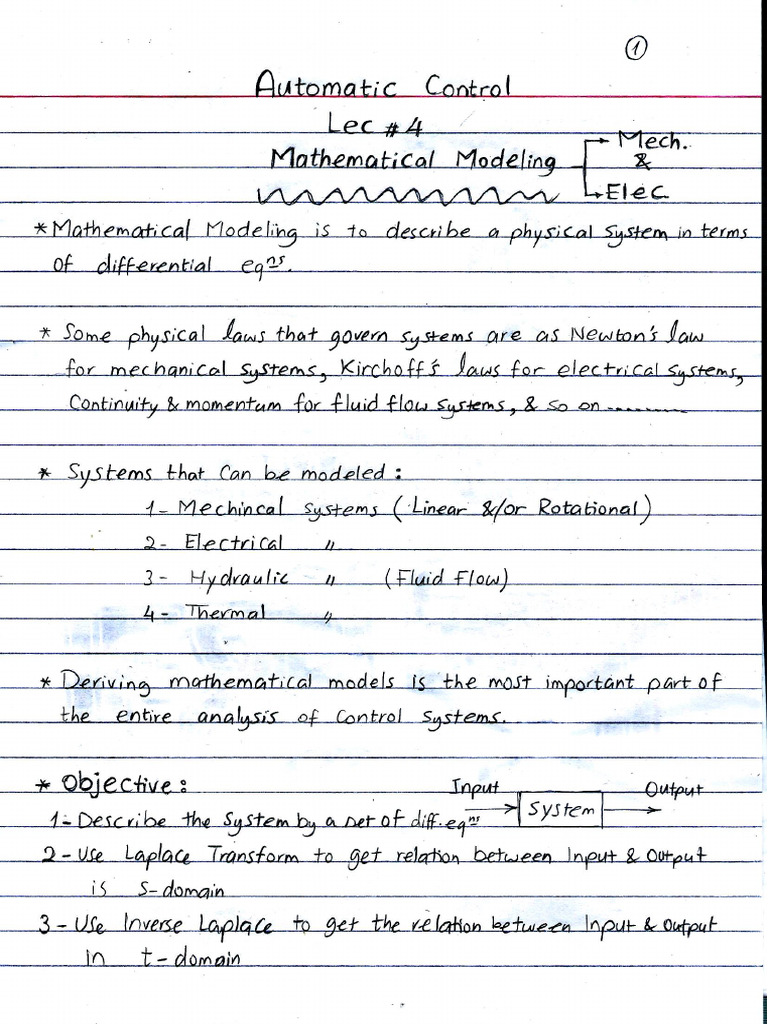 ①
Automatic Control
Lec # 4
Mathematical Modeling → Mech.
&
→ Elec.
* Mathematical Modeling is to describe a physical system in terms
of differential eqⁿˢ.
* Some physical laws that govern systems are as Newton's law
for mechanical systems, Kirchoff's laws for electrical systems,
Continuity & momentum for fluid flow systems, & so on ..........
* Systems that can be modeled :
1- Mechincal systems (Linear &/or Rotational)
2- Electrical "
3- Hydraulic " (Fluid Flow)
4- Thermal "
* Deriving mathematical models is the most important part of
the entire analysis of control systems.
* Objective :
Input → System → Output
1- Describe the system by a set of diff. eqⁿˢ
2- Use Laplace Transform to get relation between Input & Output
is s-domain
3- Use Inverse Laplace to get the relation between Input & Output
in t-domain